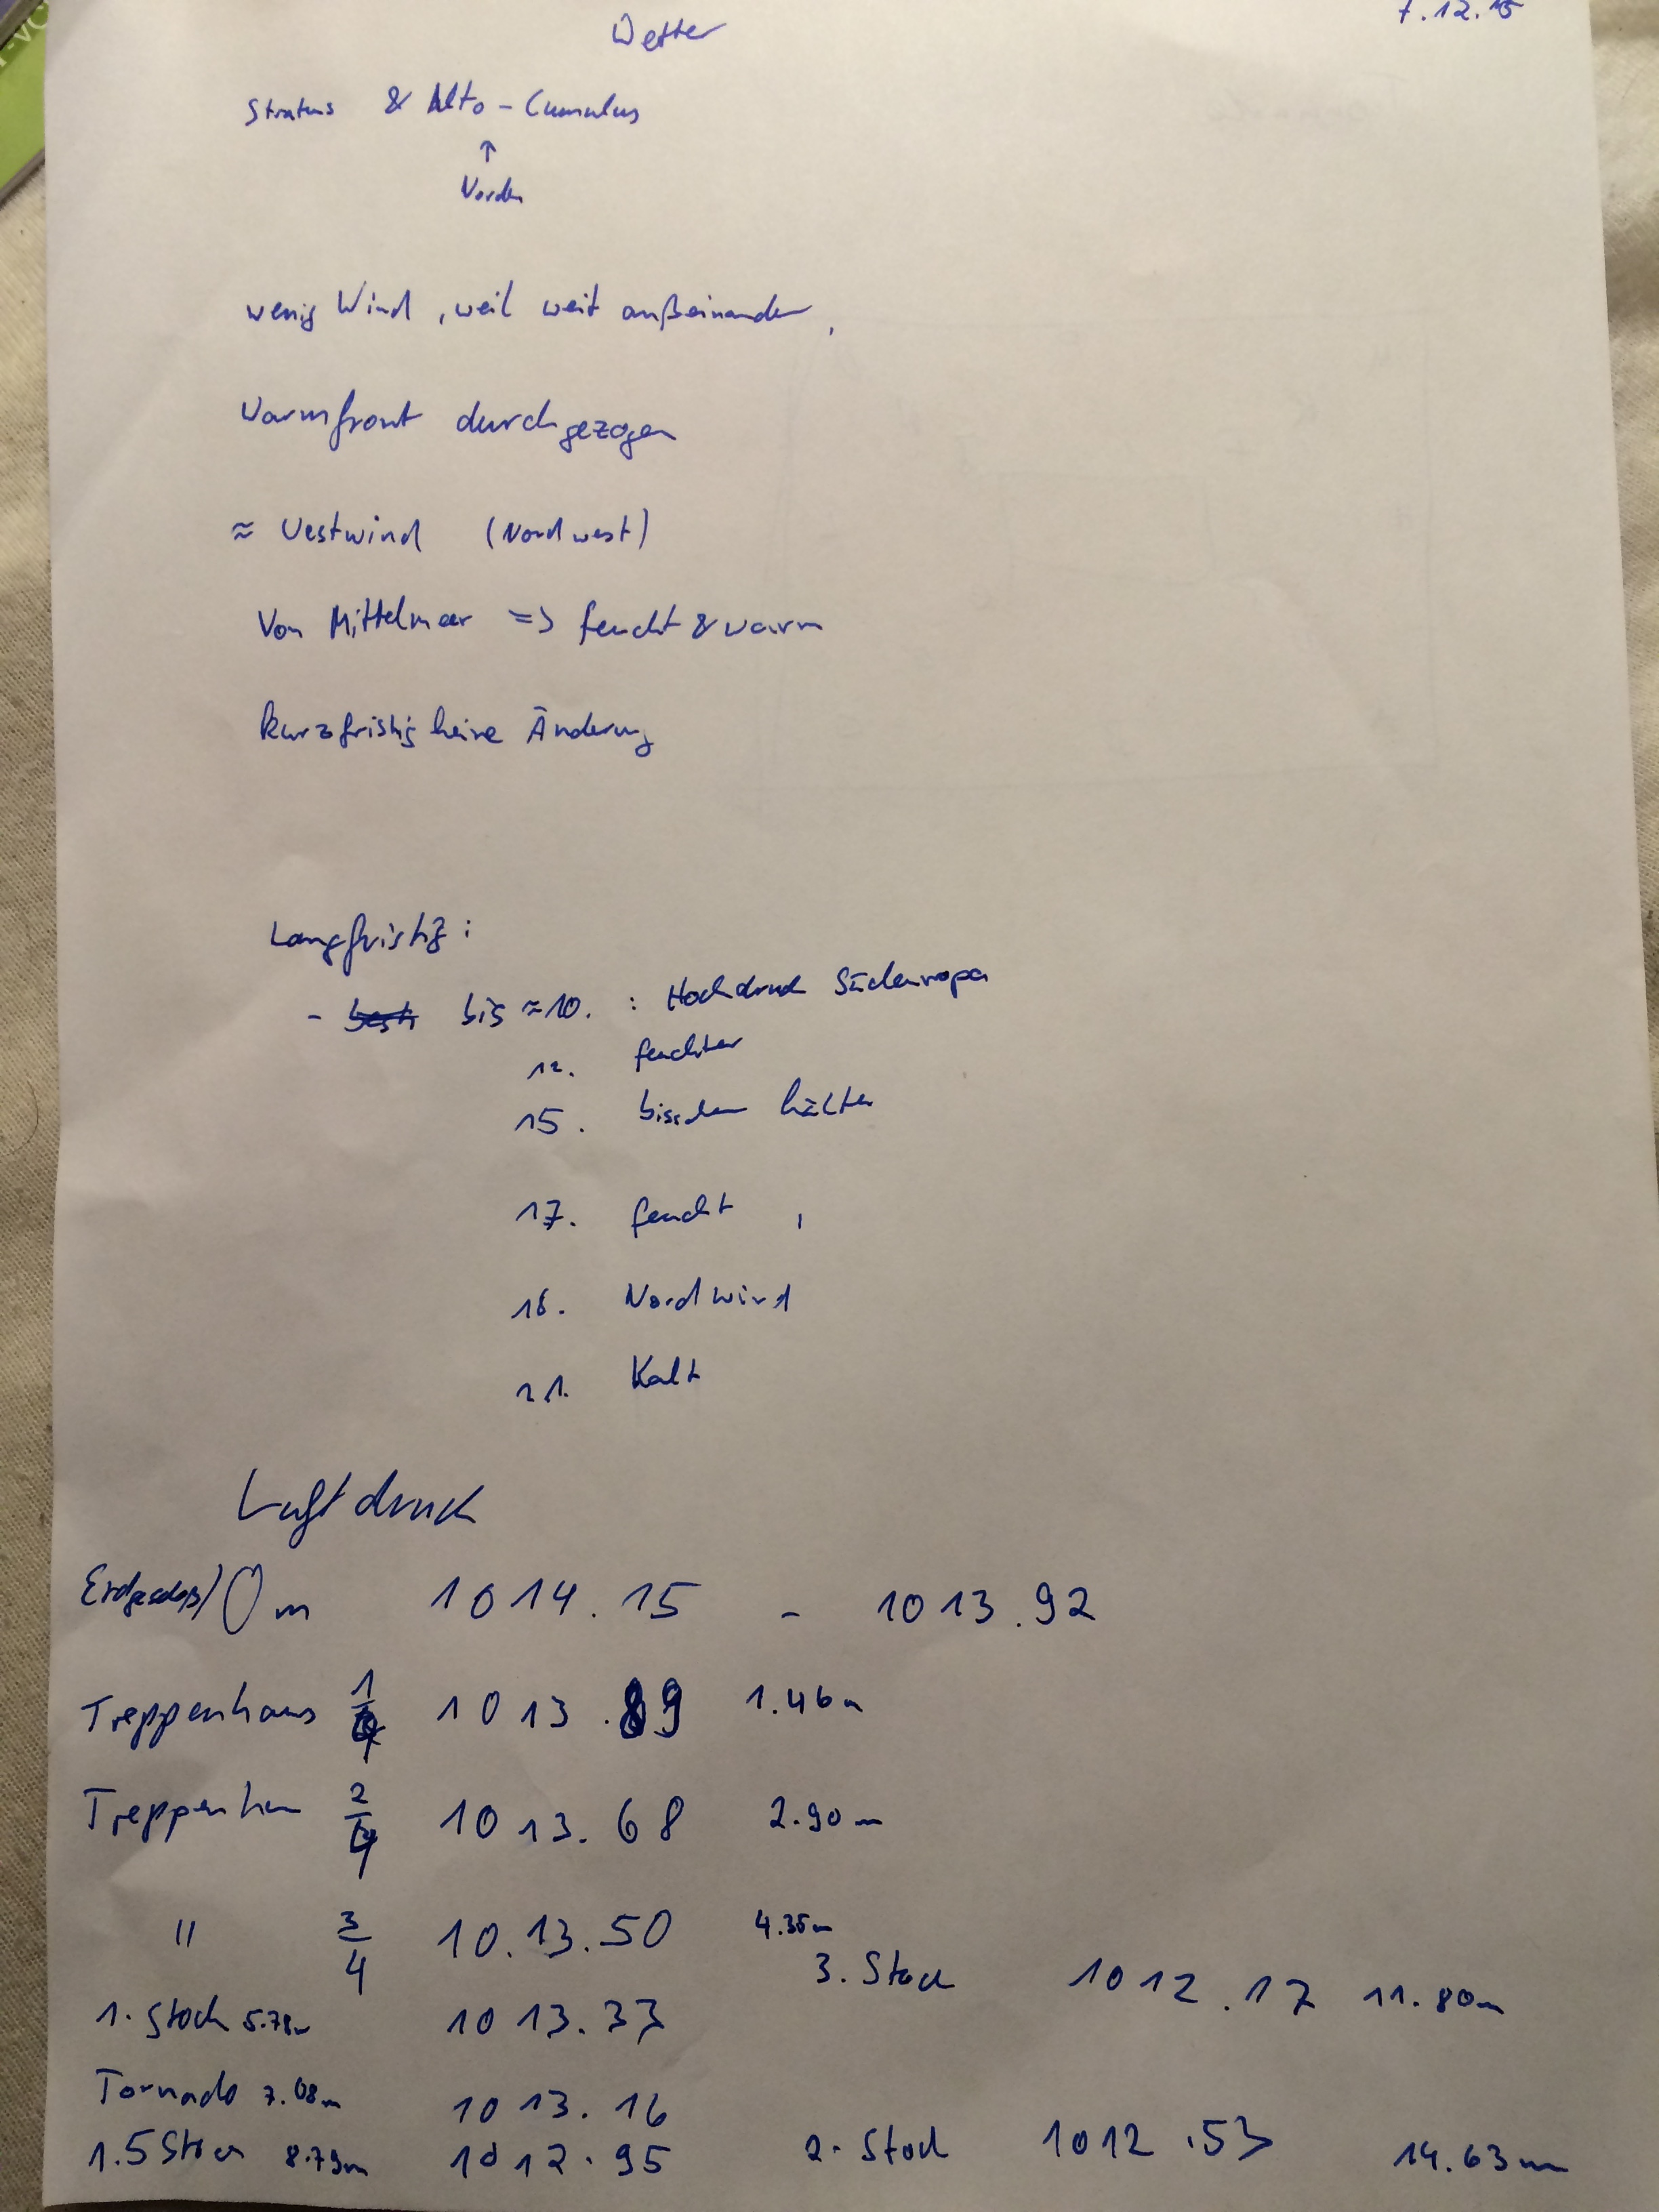 Wetter 7.12.15
Stratus & Alto-Cumulus
↑
Norden
wenig Wind, weil weit außeinander,
Warmfront durchgezogen
≈ Westwind (Nordwest)
Von Mittelmeer => feucht & warm
kurzfristig keine Änderung
Langfristig:
- bis ≈10. : Hochdruck Südeuropa
12. feuchter
15. bisschen kälter
17. feucht ,
18. Nordwind
21. Kalt
Luftdruck
Erdgeschoß/0m 1014.15 - 1013.92
Treppenhaus 1/4 1013.89 1.46m
Treppenhaus 2/4 1013.68 2.90m
" 3/4 10.13.50 4.35m
3. Stock 1012.17 11.80m
1. Stock 5.78m 1013.33
Tornado 7.08m 1013.16
1.5 Stock 8.79m 1012.95
2. Stock 1012.53 14.63m